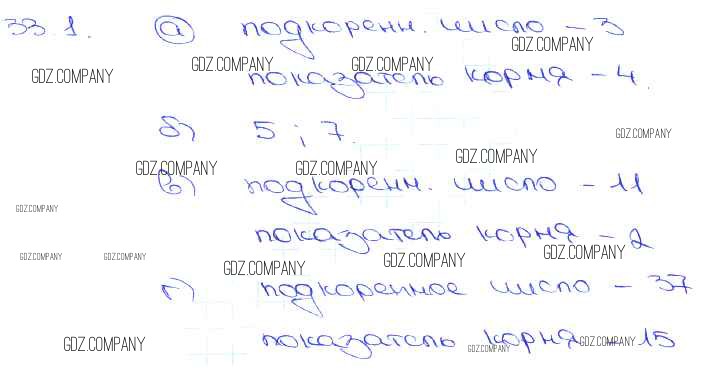 33.1. а) подкоренн. число - 3
GDZ.COMPANY
GDZ.COMPANY GDZ.COMPANY GDZ.COMPANY
показатель корня - 4.
б) 5 ; 7.
GDZ.COMPANY
GDZ.COMPANY GDZ.COMPANY GDZ.COMPANY
в) подкоренн. число - 11
GDZ.COMPANY
показатель корня - 2
GDZ.COMPANY GDZ.COMPANY GDZ.COMPANY GDZ.COMPANY GDZ.COMPANY
г) подкоренное число - 37
показатель корня - 15
GDZ.COMPANY GDZ.COMPANY GDZ.COMPANY